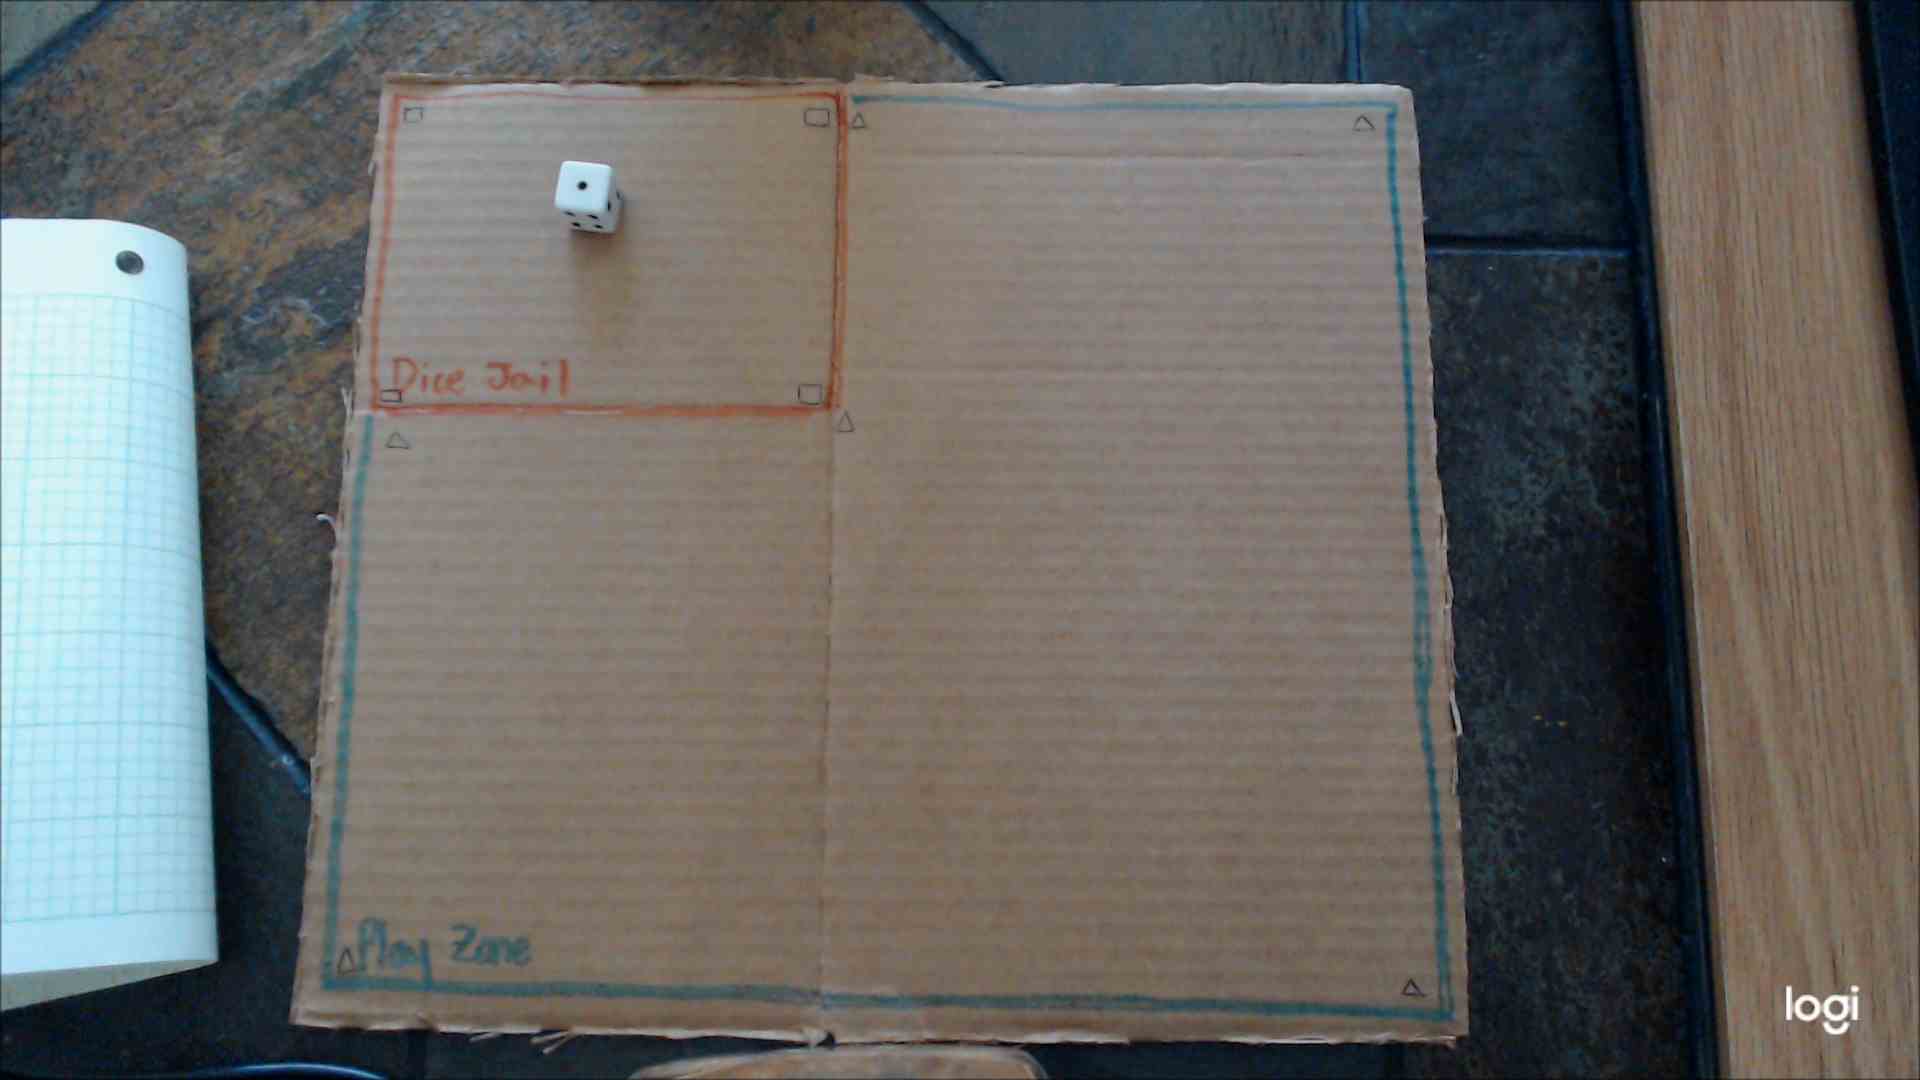 Dice Jail
Play Zone
logi